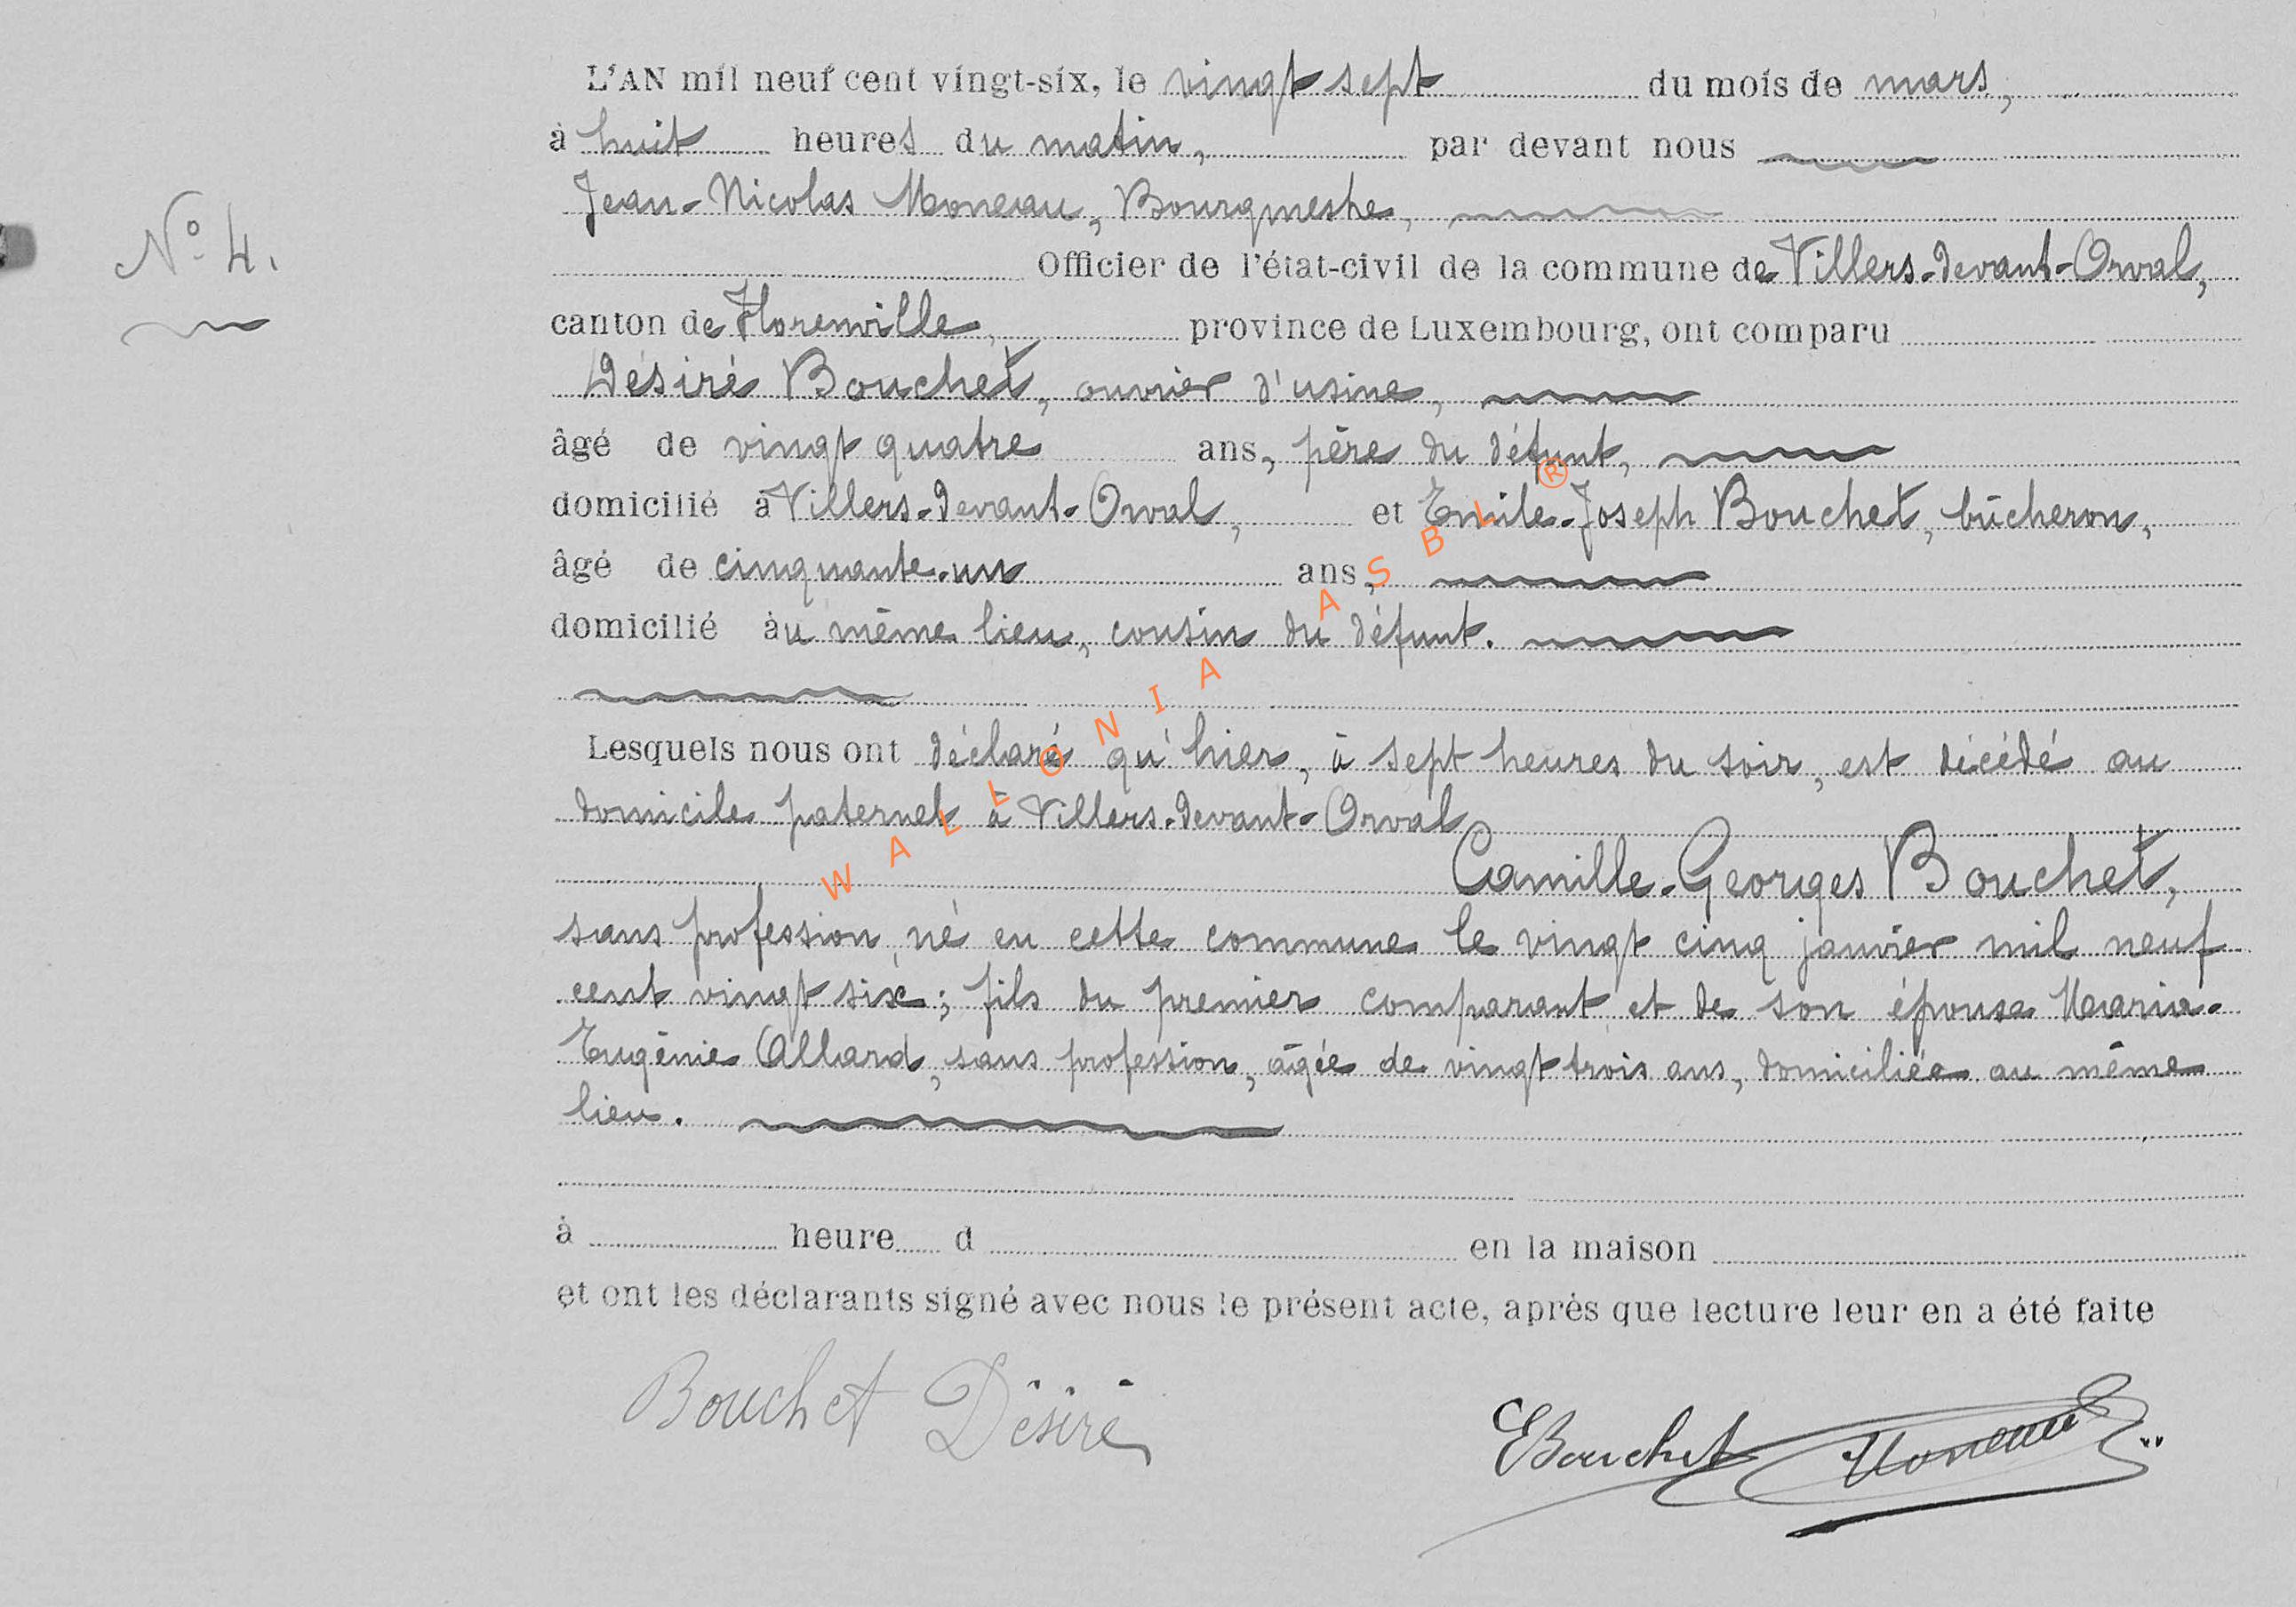 L'AN mil neuf cent vingt-six, le vingt sept du mois de mars,
à huit heures du matin, par devant nous
Jean-Nicolas Moneau, Bourgmestre,
N° 4.
Officier de l'état-civil de la commune de Villers-devant-Orval,
canton de Florenville, province de Luxembourg, ont comparu
Désiré Bouchet, ouvrier d'usine,
âgé de vingt quatre ans, père du défunt,
domicilié à Villers-devant-Orval, et Emile-Joseph Bouchet, bûcheron,
âgé de cinquante-un ans,
domicilié au même lieu, cousin du défunt.
Lesquels nous ont déclaré qu'hier, à sept heures du soir, est décédé au
domicile paternel à Villers-devant-Orval
Camille-Georges Bouchet,
sans profession, né en cette commune le vingt cinq janvier mil neuf
cent vingt six; fils du premier comparant et de son épouse Maria-
Eugénie Allard, sans profession, âgée de vingt trois ans, domiciliée au même
lieu.
à heure d en la maison
et ont les déclarants signé avec nous le présent acte, après que lecture leur en a été faite
Bouchet Désiré
EBouchet Moneau
WALLONIA ASBL ®